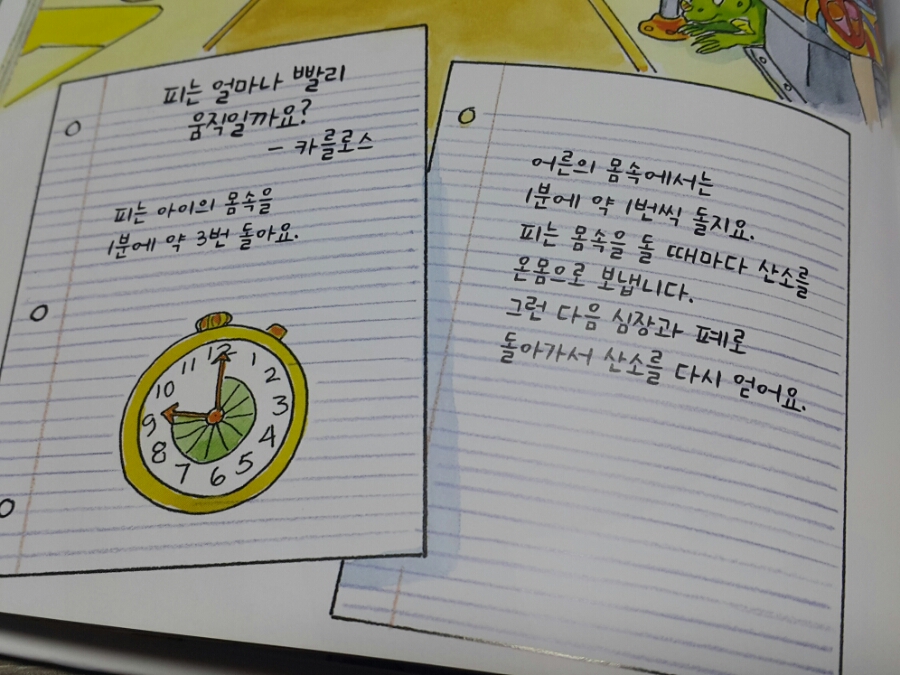 피는 얼마나 빨리
움직일까요?
- 카를로스
피는 아이의 몸속을
1분에 약 3번 돌아요.
12
1
2
3
4
5
6
7
8
9
10
11
어른의 몸속에서는
1분에 약 1번씩 돌지요.
피는 몸속을 돌 때마다 산소를
온몸으로 보냅니다.
그런 다음 심장과 폐로
돌아가서 산소를 다시 얻어요.